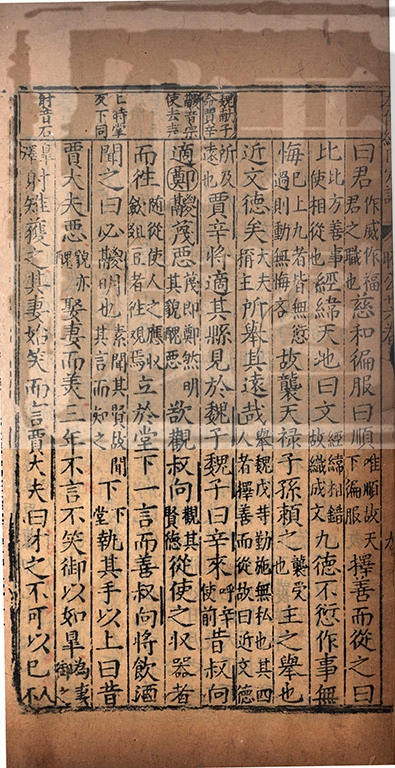 曰君作威作福君之職也慈和徧服曰順唯順故天下徧服擇善而從之曰
比比方善事使相從也經緯天地曰文經緯相錯故織成文九德不愆作事無
悔已上九者皆無愆過則動無悔吝故襲天祿子孫賴之襲受也主之舉也
近文德矣大夫稱主所舉其遠哉舉魏戊等勤施無私也其四人者擇善而從故曰近文德
所及遠也賈辛將適其縣見於魏子魏子曰辛來呼辛使前昔叔向
適鄭鬷蔑惡蔑即鄭然明其貌醜惡欲觀叔向觀其賢德從使之收器者
而往隨從使人之應收斂俎豆者往觀焉立於堂下一言而善叔向將飲酒
聞之曰必鬷明也素聞其賢故聞其言而知之下下堂執其手以上曰昔
賈大夫惡貌亦醜娶妻而美三年不言不笑御以如皋為妻御之
皋澤射雉獲之其妻始笑而言賈大夫曰才之不可以已不
魏献子
命賈辛
鬷音宗
使去声
上時掌
反下同
射音石